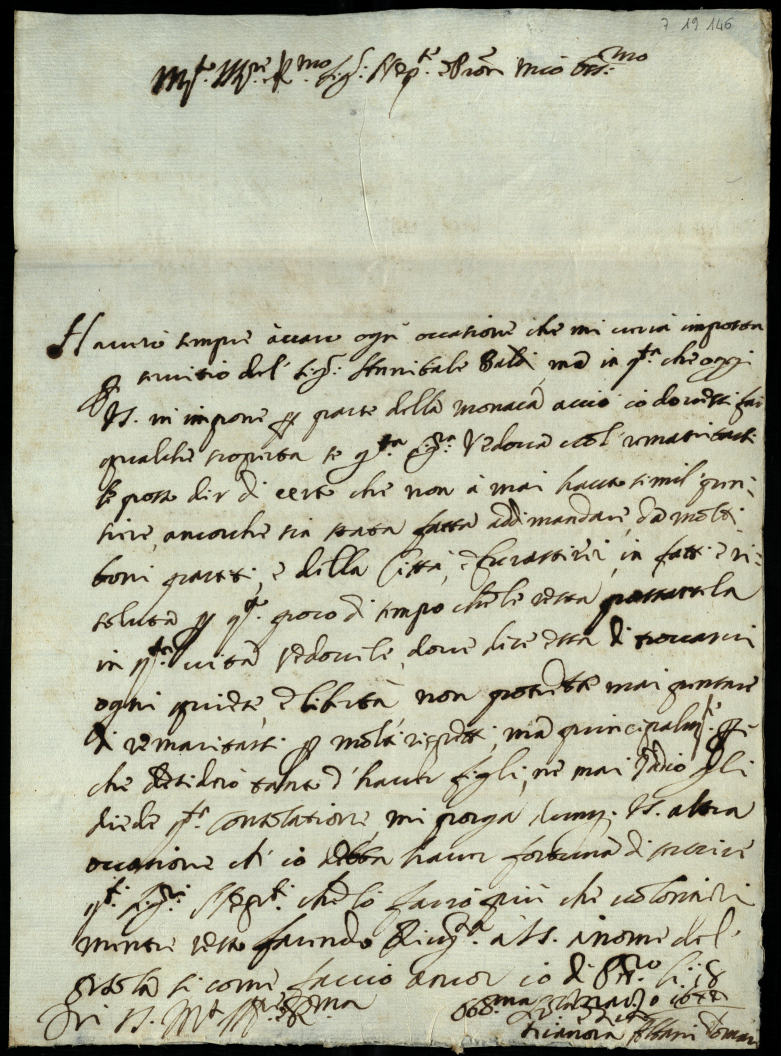 7 19 146
Mto Illre Rmo Sigr Nepte e Pron mio Ossmo
Haverò sempre à caro ogni occasione che mi verrà imposta
servitio del Sigr Annibale Baldi, ma in qta che oggi
VS. m impone per parte della monaca acciò io dovessi far
qualche scoperta se qta Sigra Vedova vol rimaritarsi
le posso dir di certo che non à mai hauto simil pen-
siere, ancorche sia stata fatta addimandare, da molti
boni partiti, e della Città, e forastieri, in fatti è ri-
soluta per qto poco di tempo che le resta passarsela
in qta vita Vedovile, dove dice essa di trovarvi
ogni quiete e libertà non potrebbe mai pensare
di remaritarsi per molti rispetti, ma principalmte per
che desiderò tanto d'haver figli, ne mai Iddio gli
diede qta consolatione, mi porga dunq. VS. altra
occasione ch' io debba haver fortuna di servire
qti Sigri Nepti che lo farò più che volontieri
mentre resto facendo Rivza à VS. à nome del
si come faccio ancor io di li 18
Di VS. Mto Illre Rma